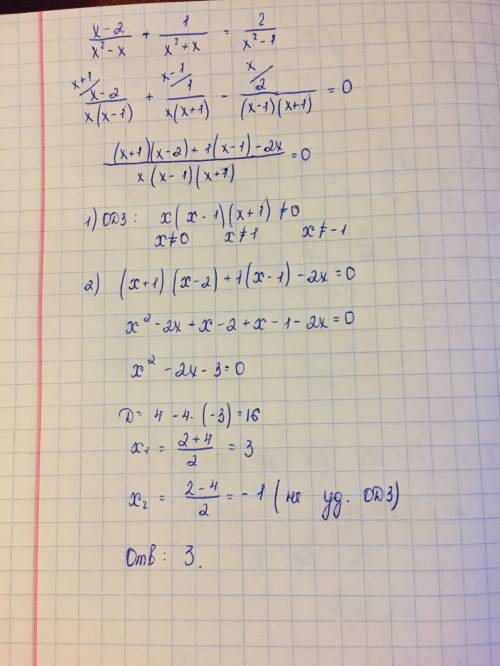 (x-2)/(x²-x) + 1/(x²+x) = 2/(x²-1)
x+1/ (x-2)/(x(x-1)) + x-1/ 1/(x(x+1)) - x/ 2/((x-1)(x+1)) = 0
((x+1)(x-2)+1(x-1)-2x)/(x(x-1)(x+1)) = 0
1) ОДЗ: x(x-1)(x+1)≠0
x≠0 x≠1 x≠-1
2) (x+1)(x-2)+1(x-1)-2x=0
x²-2x+x-2+x-1-2x=0
x²-2x-3=0
D= 4-4·(-3)=16
x₁ = (2+4)/2 = 3
x₂ = (2-4)/2 = -1 (не уд. ОДЗ)
Отв: 3.